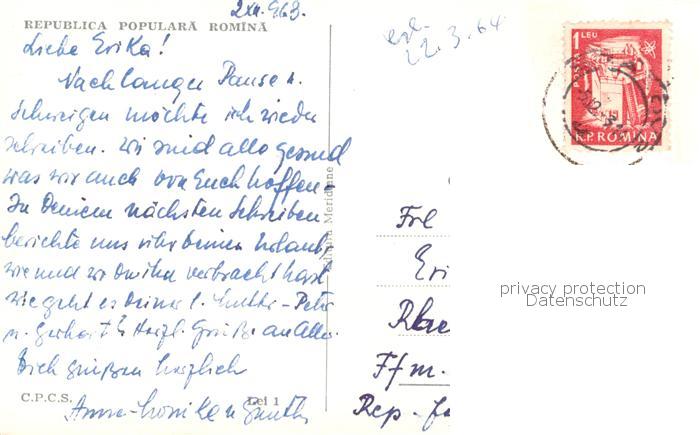 2.XII.963.
REPUBLICA POPULARĂ ROMÎNĂ
Liebe Erika!
Nach langer Pause u.
Schweigen möchte ich wieder
schreiben. Wir sind alle gesund
was wir auch von Euch hoffen.
In Deinem nächsten Schreiben
berichte uns über Deinen Urlaub,
wie und wo Du ihn verbracht hast
wie geht es Deiner l. Mutter - Peter
u. Gerhard? Herzl. Grüße an Alle.
Dich grüßen herzlich
Anne-Monika u Günther
C.P.C.S.
Lei 1
Meridiane
22.3.64
1 LEU
R.P. ROMINA
Frl
Eri
Ffm.
Rep.
privacy protection
Datenschutz